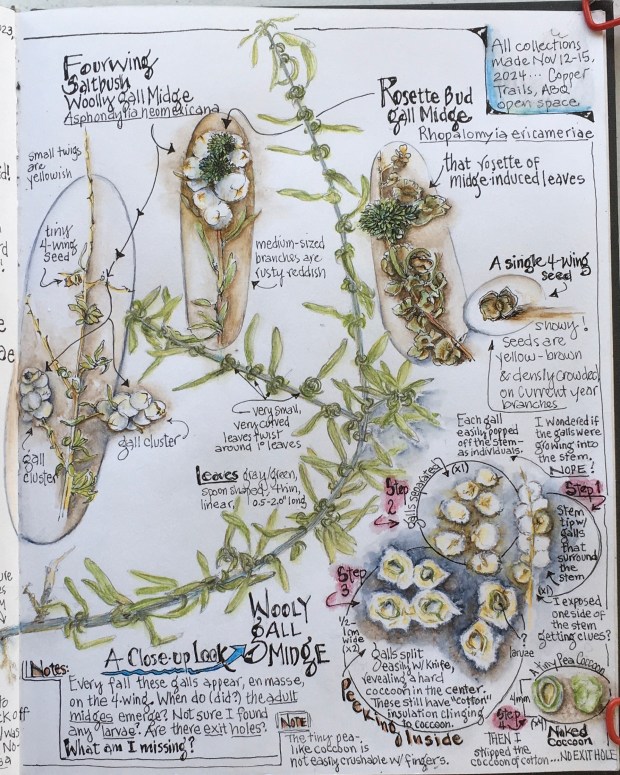 023,
Fourwing
Saltbush
Woolly Gall Midge
Asphondylia neomexicana
small twigs
are
yellowish
tiny
4-wing
seed
medium-sized
branches are
rusty reddish
Rosette Bud
Gall Midge
Rhopalomyia ericameriae
All collections
made Nov 12-15,
2024... Copper
Trails, ABQ
open space
that rosette of
midge-induced leaves
A single 4-wing
seed
showy!
Seeds are
yellow-brown
& densly crowded
on current year
branches
gall
cluster
gall cluster
very small,
very curved
leaves twist
around 1° leaves
Leaves gray/green,
spoon shaped, thin,
linear, 0.5-2.0" long
Each gall
easily popped
off the stem-
as individuals.
I wondered if
the galls were
growing into
the stem.
NOPE!
Step 1
Stem
tip w/
galls
that
surround
the
stem
(x1)
I exposed
one side of
the stem
getting clues?
Step
2.
galls separated (x1)
Step
3.
1/2
1cm
wide
(x2)
galls split
easily w/ knife,
revealing a hard
coccoon in the center.
These still have "cotton"
insulation clinging
to coccoon.
?
larvae
Peeking Inside
A Tiny Pea Cocoon
4mm
(x4)
Naked
Cocoon
THEN I
stripped the
coccoon of cotton... NO EXIT HOLE
Wooly
Gall
Midge
A Close-up Look
Notes:
Every fall these galls appear, en masse,
on the 4-wing. When do (did?) the adult
midges emerge? Not sure I found
any larvae? Are there exit holes?
What am I missing?
Note
The tiny pea-
like cocoon is
not easily crushable w/ fingers.